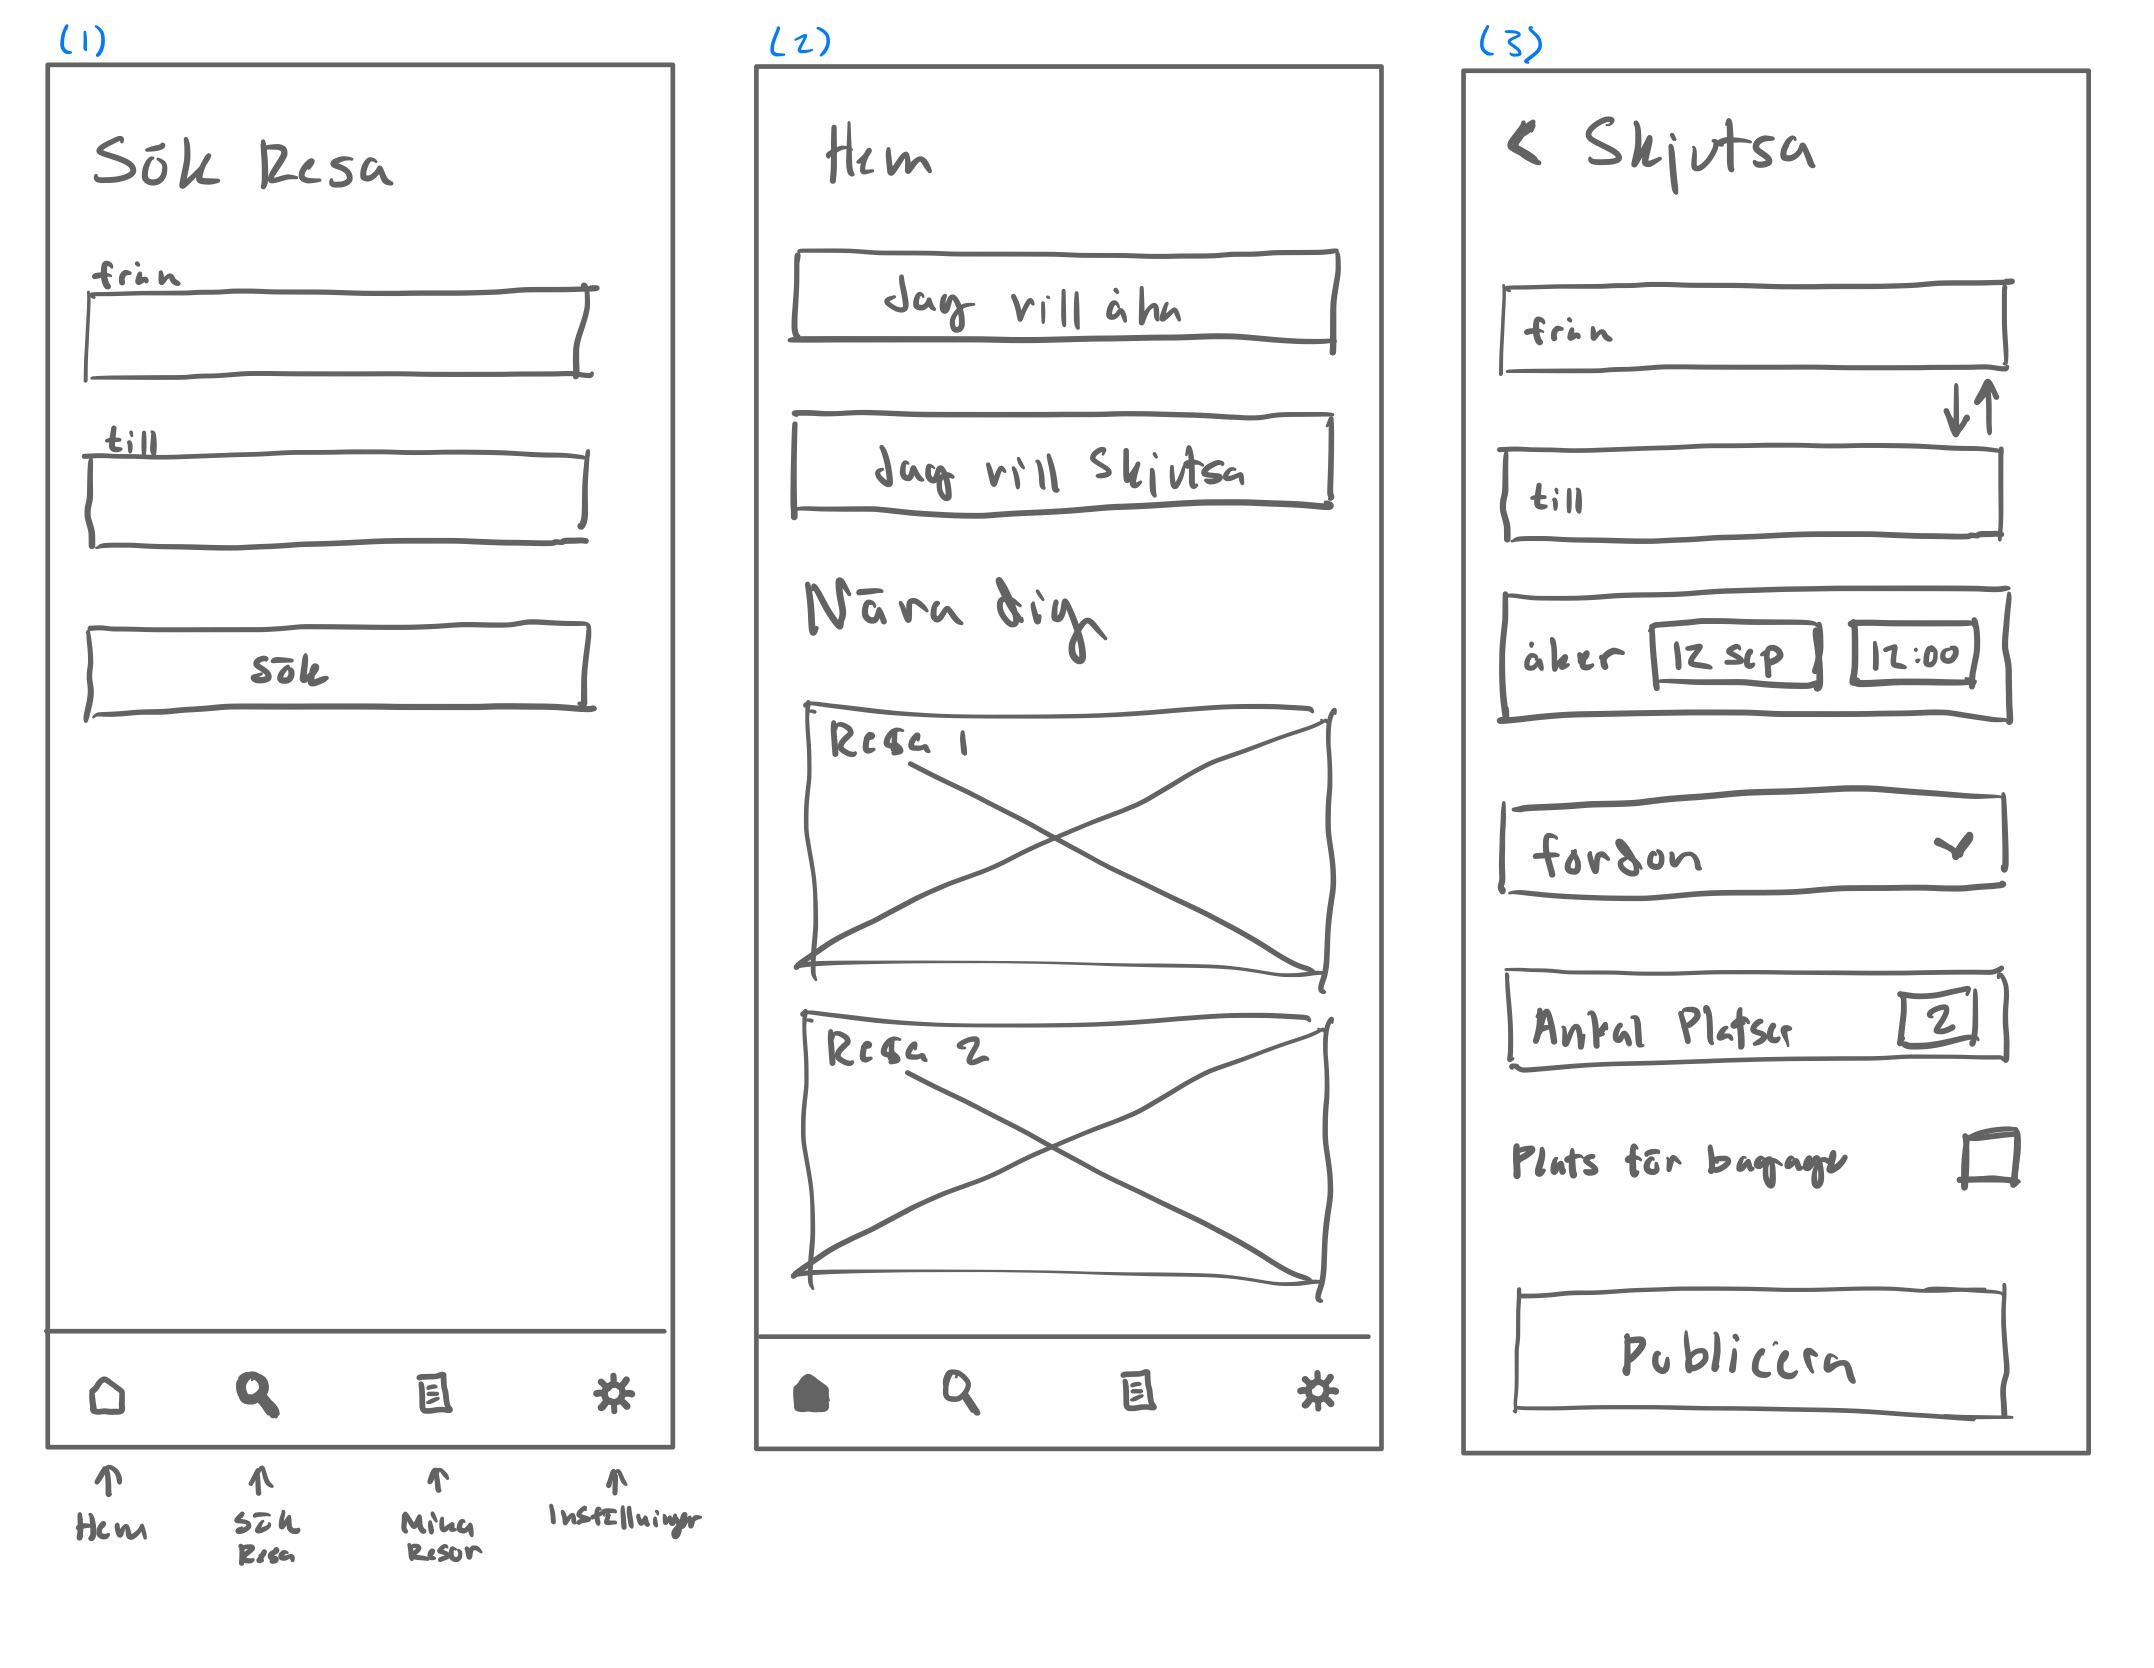 (1)
Sök Resa
från
till
sök
Hem
Sök
Resa
Mina
Resor
Inställningar
(2)
Hem
Jag vill åka
Jag vill Skjutsa
Nära dig
Resa 1
Resa 2
(3)
Skjutsa
från
till
åker 12 sep 12:00
fordon
Antal Platser 2
Plats för bagage
Publicera